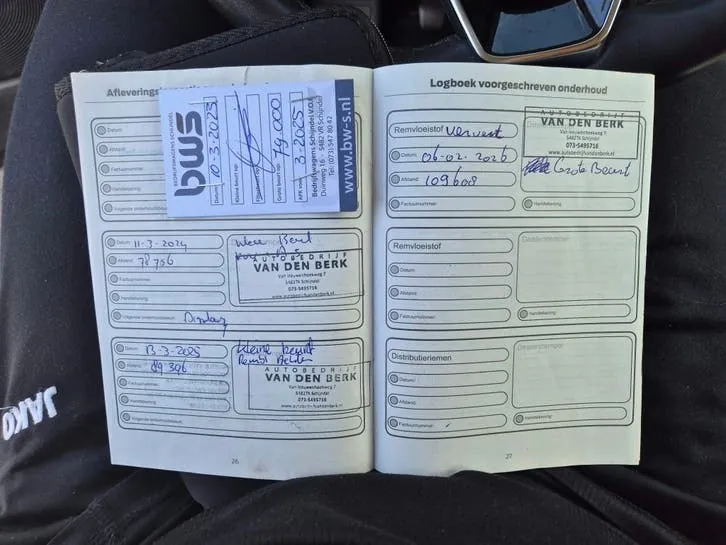 Afleverings
Datum:
Afstand:
Factuurnummer:
Handtekening:
Volgende onderhoudsbeurt:
bws
BEDRIJFSWAGENS SCHIJNDEL
Datum
10-3-2023
Kleine beurt
Grote beurt
79.000
APK
3-2025
Bedrijfswagens Schijndel V.O.F.
Duinweg 16
5482 VR Schijndel
Tel: (073) 547 80 42
www.bw-s.nl
Datum: 11-3-2024
Afstand: 78756
Factuurnummer:
Handtekening:
Volgende onderhoudsbeurt:
Display
AUTOBEDRIJF
VAN DEN BERK
Van Leeuwenhoekweg 7
5482TK Schijndel
073-5495716
www.autobedrijfvandenberk.nl
Datum: 13-3-2025
Afstand: 89396
Factuurnummer:
Handtekening:
Volgende onderhoudsbeurt:
Kleine beurt
AUTOBEDRIJF
VAN DEN BERK
Van Leeuwenhoekweg 7
5482TK Schijndel
073-5495716
www.autobedrijfvandenberk.nl
26
Logboek voorgeschreven onderhoud
Remvloeistof Ververst
Datum: 06-02-2026
Afstand: 109608
Factuurnummer:
AUTOBEDRIJF
VAN DEN BERK
Van Leeuwenhoekweg 7
5482TK Schijndel
073-5495716
www.autobedrijfvandenberk.nl
Grote Beurt
Handtekening:
Remvloeistof
Datum:
Afstand:
Factuurnummer:
Dealerstempel:
Handtekening:
Distributieriemen
Datum:
Afstand:
Factuurnummer:
Dealerstempel:
Handtekening:
27
JAKO